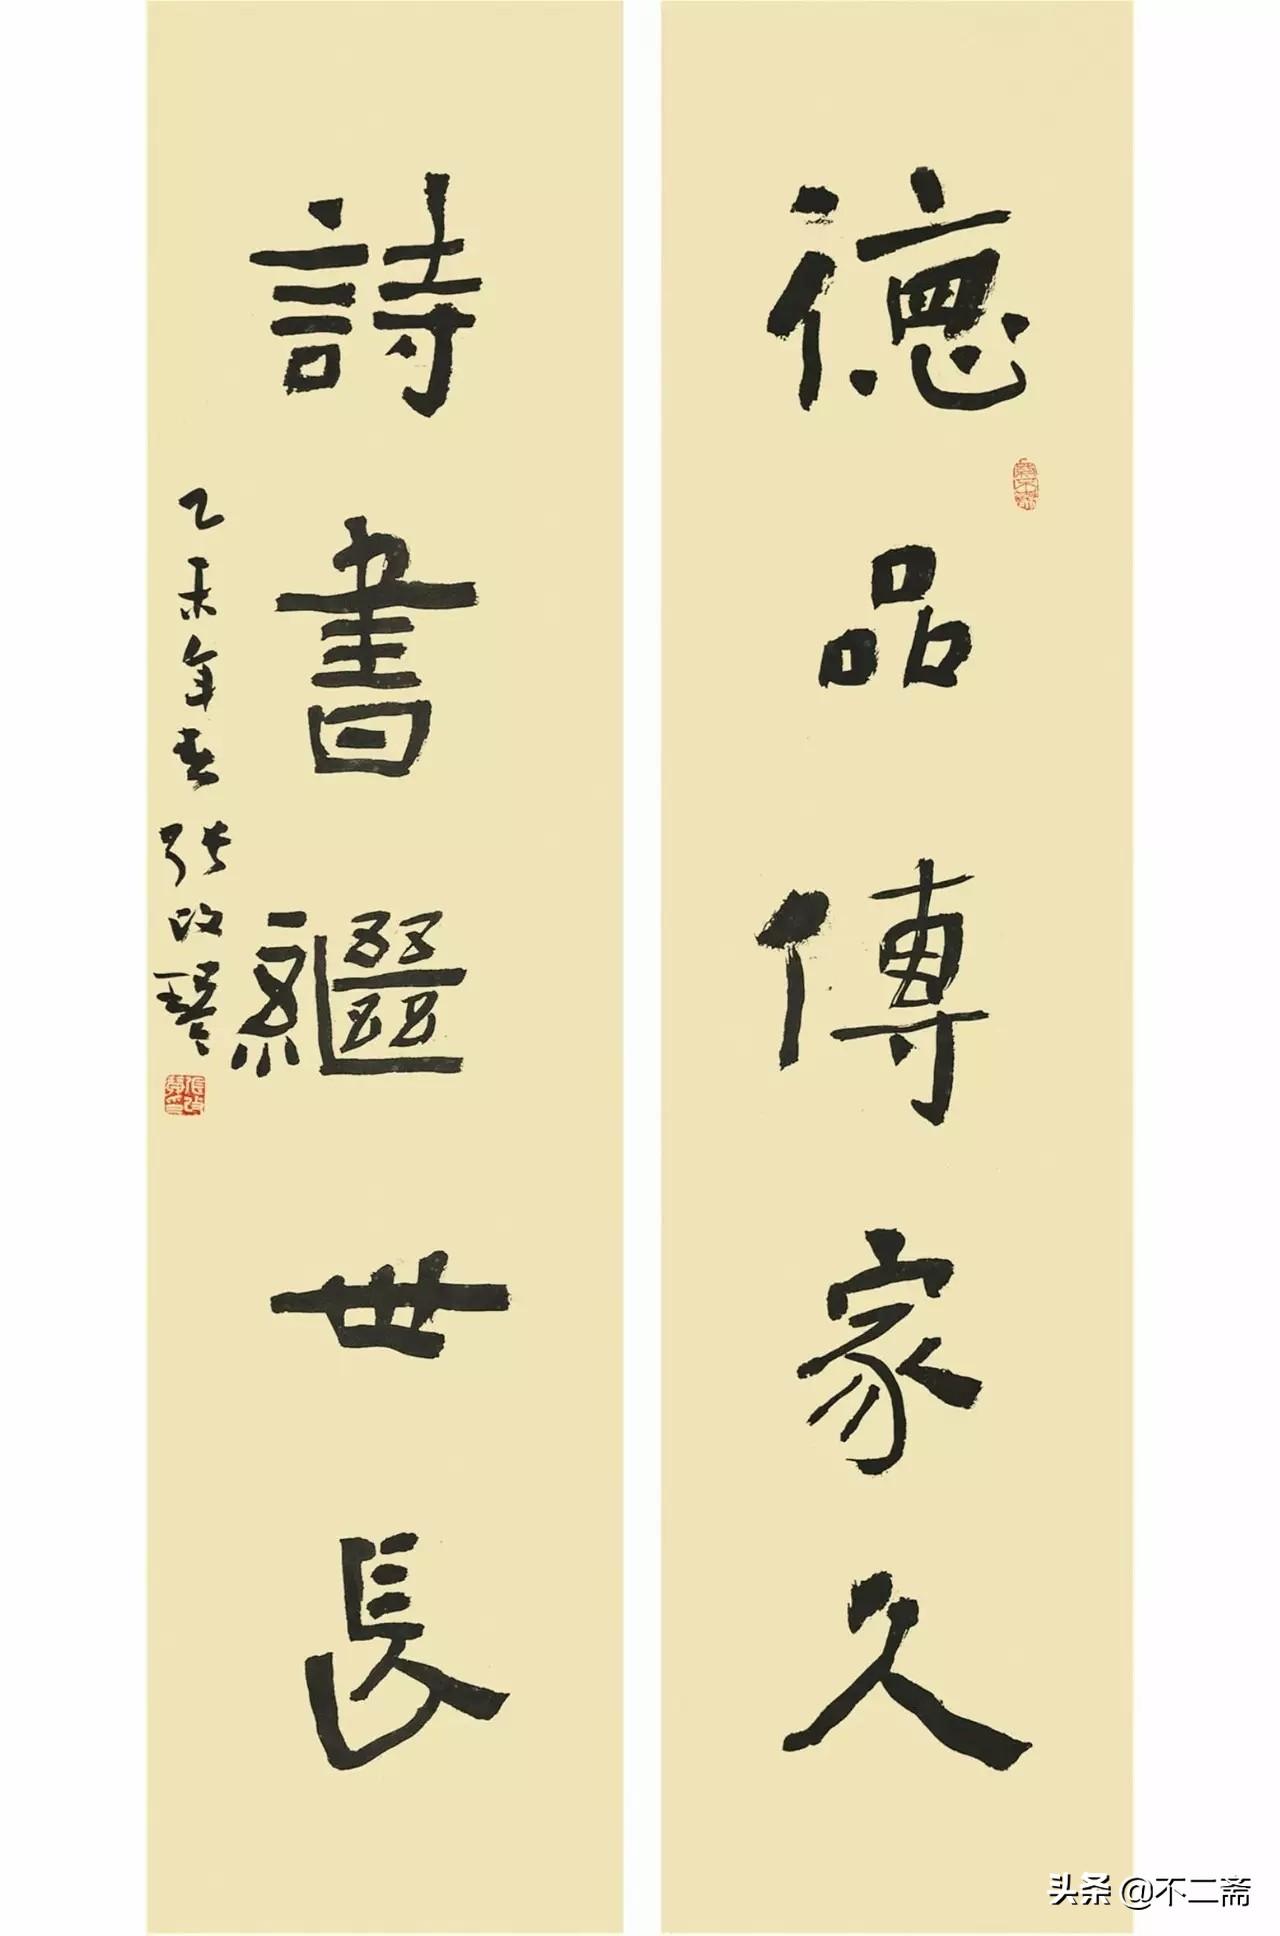 德品傳家久
詩書繼世長
乙未年春 張改琴
头条 @不二斋